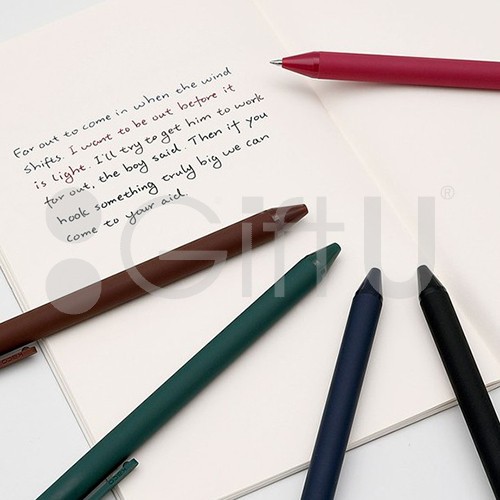 For out to come in when the wind
shifts. I want to be out before it
is light. I'll try to get him to work
far out, the boy said. Then if you
hook something truly big we can
come to your aid.
GiftU®